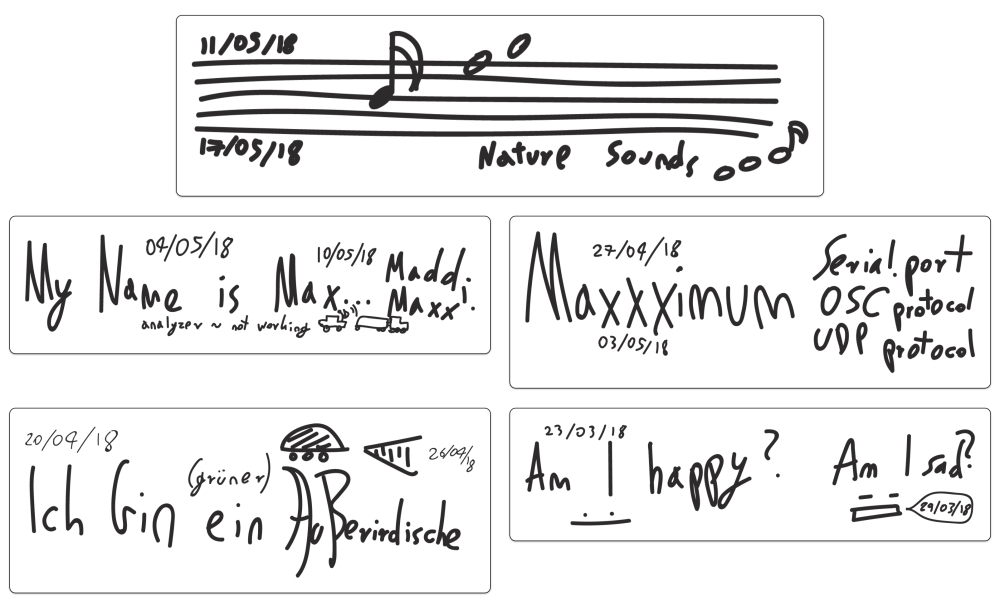 11/05/18
17/05/18
Nature Sounds
04/05/18
10/05/18
My Name is Max... Maddi
Maxx!
analyzer ~ not working
27/04/18
Maxxximum
03/05/18
Serial port
OSC protocol
UDP protocol
20/04/18
26/04/18
(grüner)
Ich bin ein Außerirdische
23/03/18
Am I happy?
Am I sad?
29/03/18